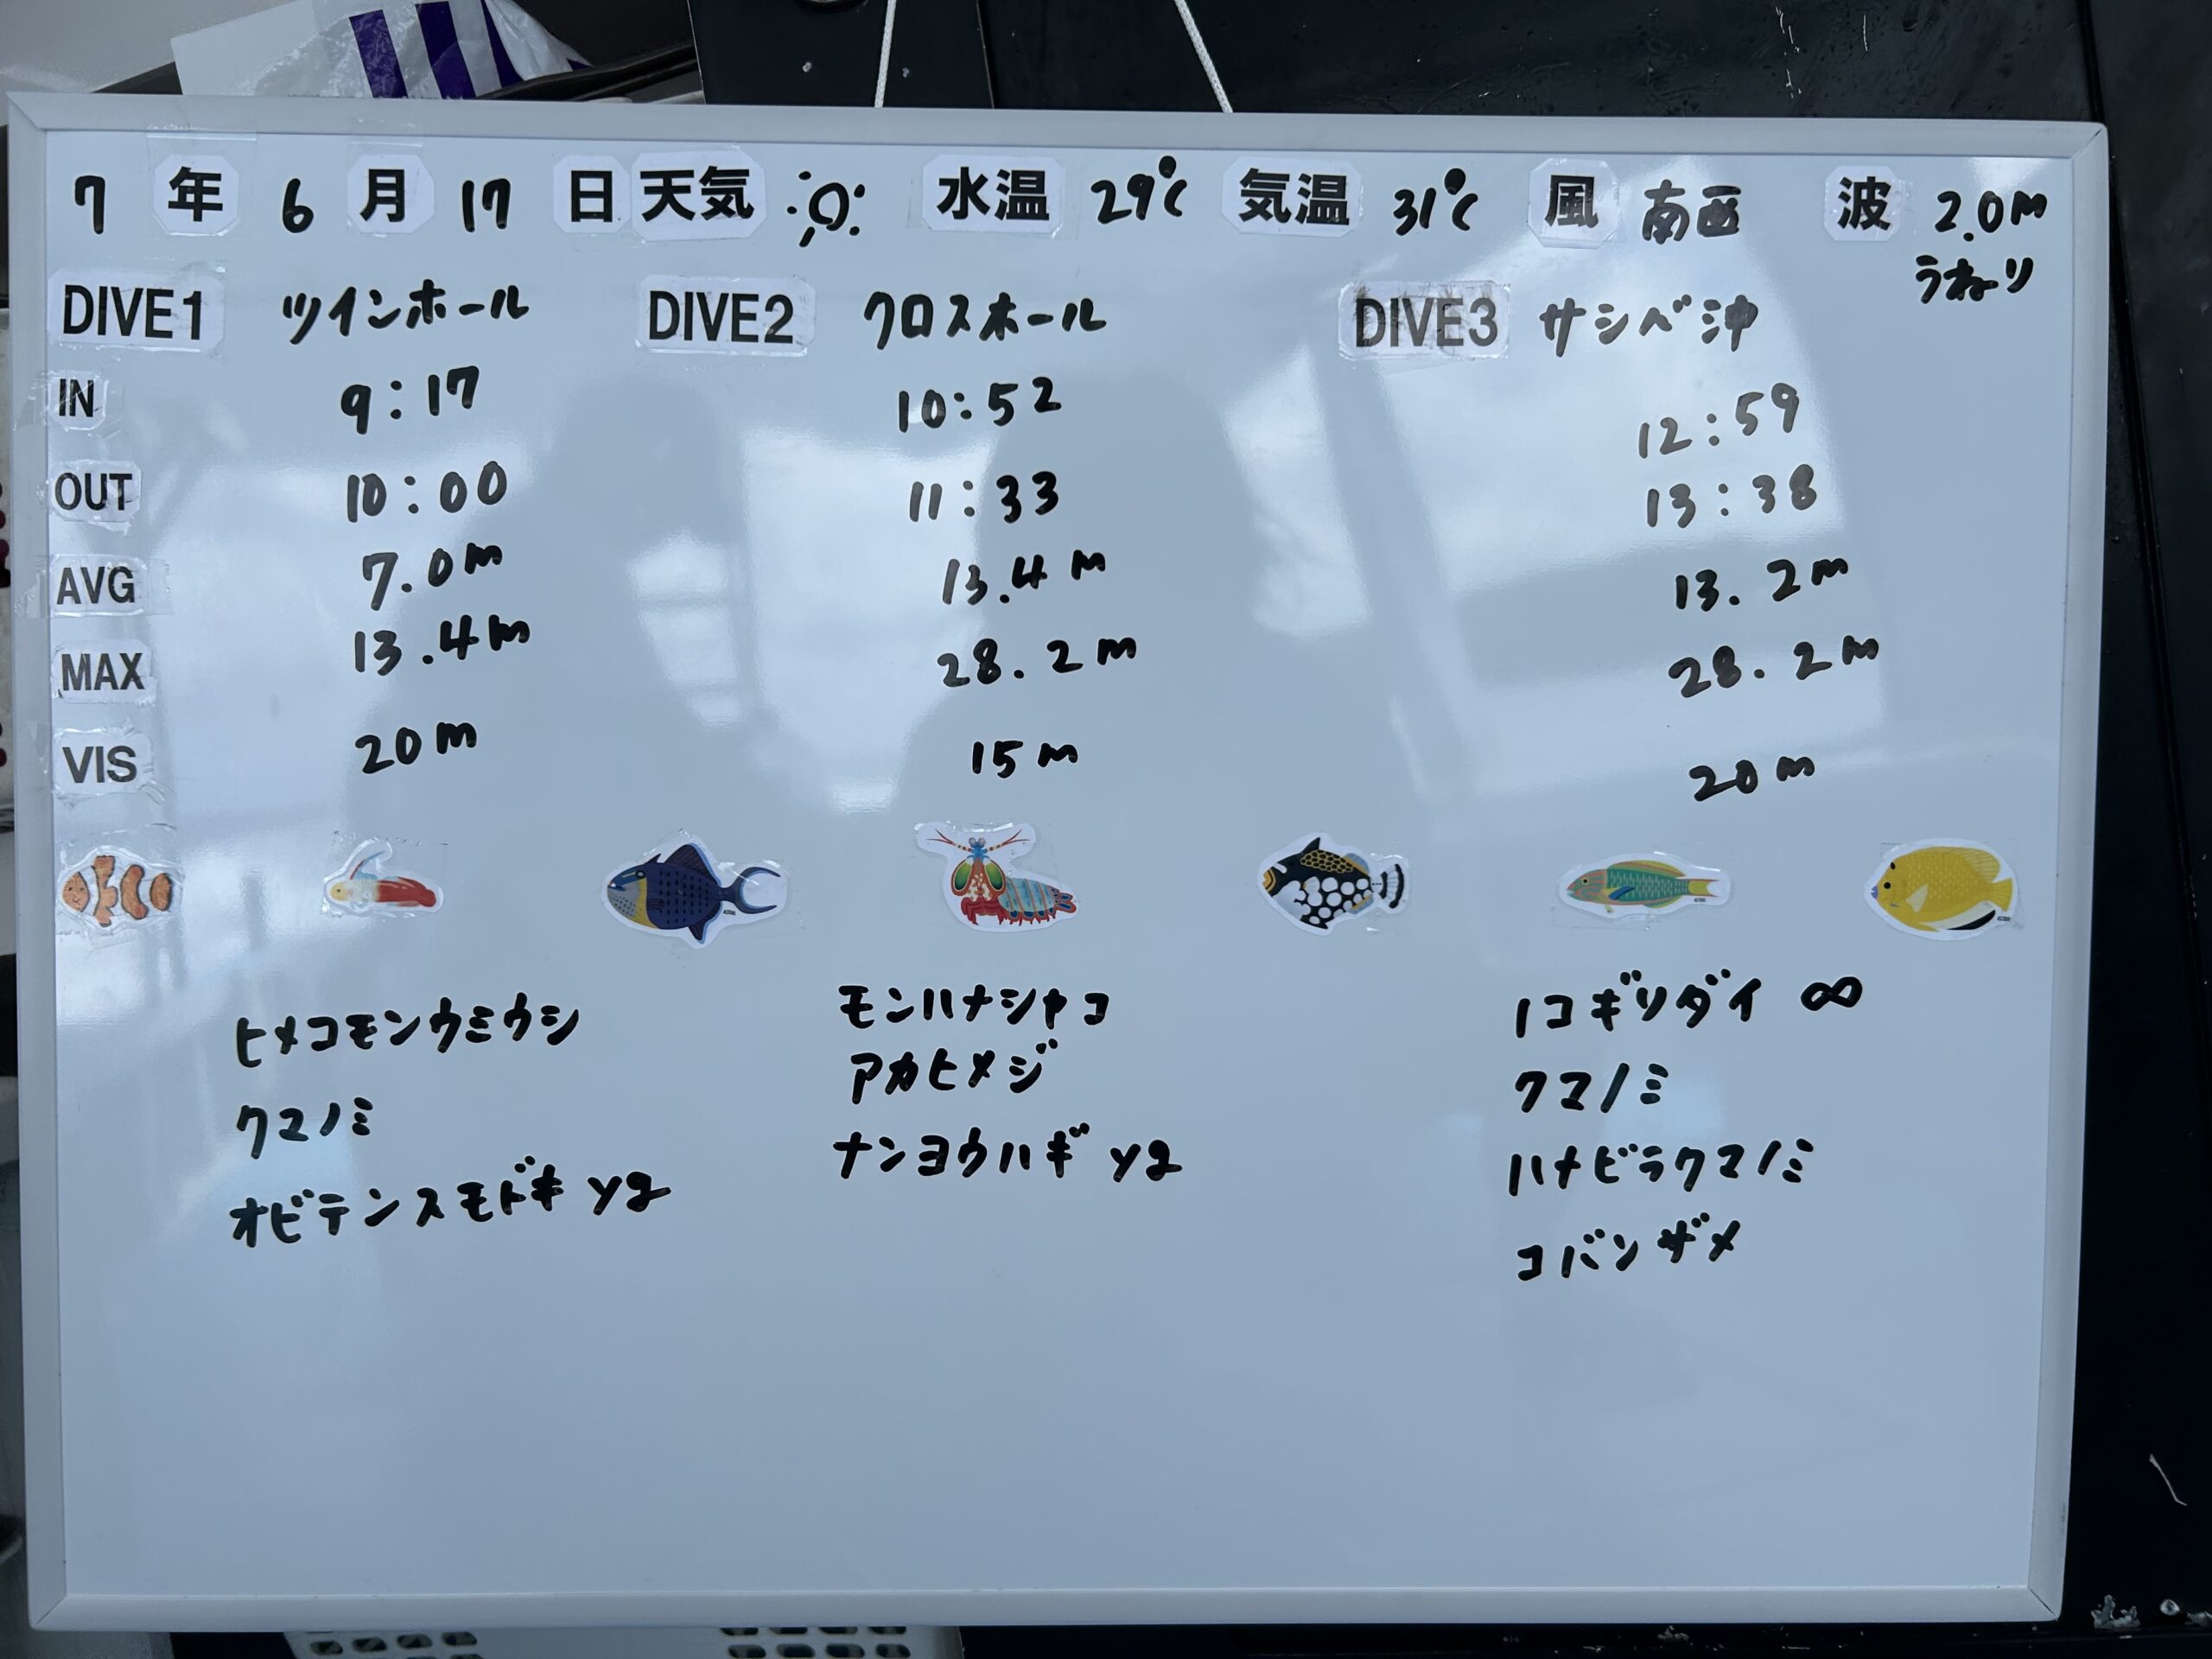 7 年 6 月 17 日 天気 水温 29℃ 気温 31℃ 風 南西 波 2.0m
うねり
DIVE1 ツインホール DIVE2 クロスホール DIVE3 サシベ沖
IN 9:17 10:52 12:59
OUT 10:00 11:33 13:38
AVG 7.0m 13.4m 13.2m
MAX 13.4m 28.2m 28.2m
VIS 20m 15m 20m
ヒメコモンウミウシ モンハナシャコ ノコギリダイ ∞
クマノミ アカヒメジ クマノミ
オビテンスモドキ yg ナンヨウハギ yg ハナビラクマノミ
コバンザメ